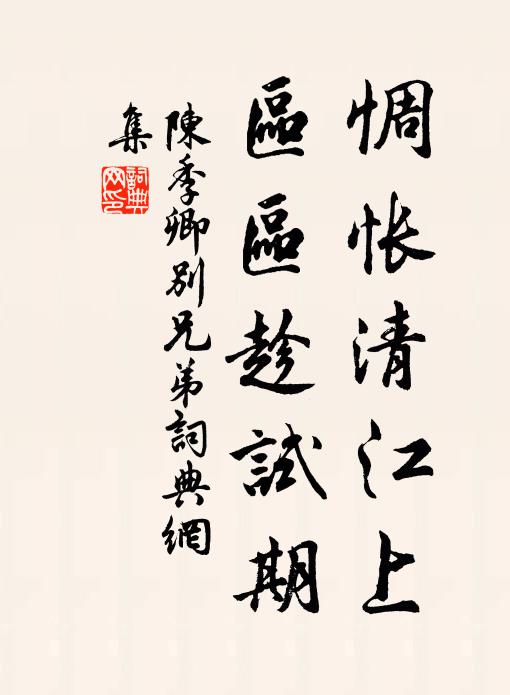 惆怅清江上
區區趁試期
陳季卿別兄弟詞典網
集
詞典
网印